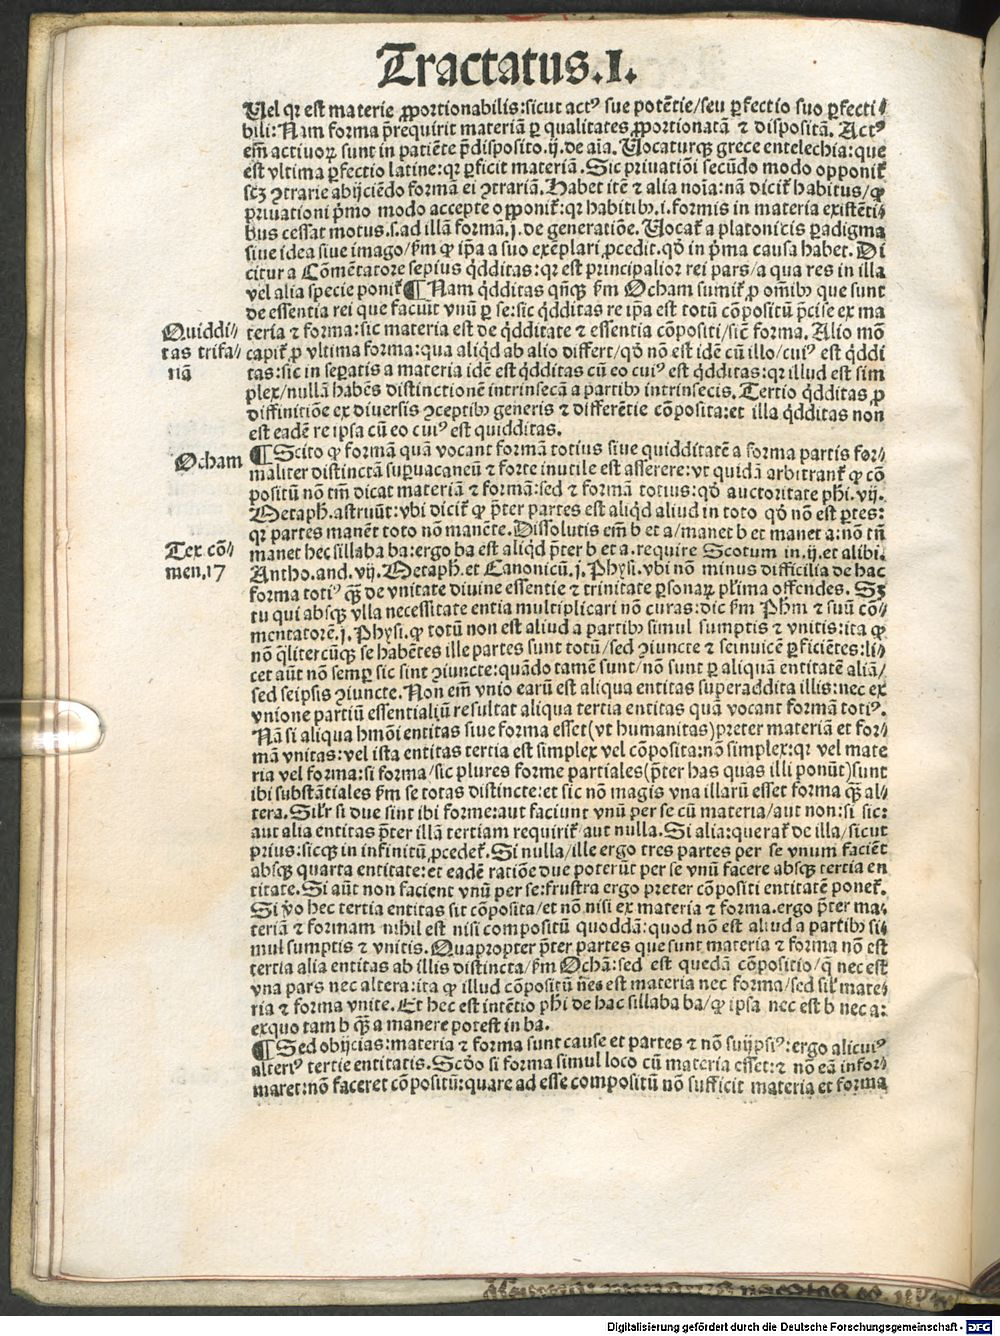 Tractatus.I.
Uel qꝛ est materie ꝓportionabilis:sicut actꝰ sue potētie/seu ꝑfectio suo ꝑfecti-
bili:Nam forma p̄requirit materiā ꝑ qualitates ꝓportionatā ⁊ dispositā. Actꝰ
em̄ actiuoꝝ sunt in patiēte p̄disposito.ij.de aīa. Uocaturqꝫ grece entelechia:que
est vltima ꝑfectio latine:qꝛ ꝑficit materiā. Sic priuatiōi secūdo modo opponit̄
scꝫ ꝯtrarie abijciēdo formā ei ꝯtrariā. Habet itē ⁊ alia noīa:nā dicit̄ habitus/ꝙ
priuationi p̄mo modo accepte opponit̄:qꝛ habitibꝰ.i.formis in materia existēti-
bus cessat motus.s.ad illā formā.j.de generatiōe. Uocat̄ a platonicis ꝑadigma
siue idea siue imago/ẜm ꝙ ip̄a a suo exēplari ꝓcedit.qd̄ in p̄ma causa habet. Di
citur a Cōmētatore sepius q̇dditas:qꝛ est principalior rei pars/a qua res in illa
vel alia specie ponit̄ ¶ Nam q̇dditas qn̄qꝫ ẜm Ocham sumit̄ ꝓ om̄ibꝰ que sunt
de essentia rei que faciūt vnū ꝑ se:sic q̇dditas re ip̄a est totū cōpositū p̄cise ex ma
Quiddi-
tas trifa-
riā
teria ⁊ forma:sic materia est de q̇dditate ⁊ essentia cōpositi/sicut̄ forma. Alio mō
capit̄ ꝓ vltima forma:qua aliq̇d ab alio differt/qd̄ nō est idē cū illo/cuiꝰ est q̇ddi
tas:sic in seꝑatis a materia idē est q̇dditas cū eo cuiꝰ est q̇dditas:qꝛ illud est sim
plex/nullā habēs distinctionē intrinsecā a partibꝰ intrinsecis. Tertio q̇dditas ꝓ
diffinitiōe ex diuersis ꝯceptibꝰ generis ⁊ differētie cōposita:et illa q̇dditas non
est eadē re ipsa cū eo cuiꝰ est quidditas.
Ocham
¶ Scito ꝙ formā quā vocant formā totius siue quidditatē a forma partis for-
maliter distinctā suꝑuacaneū ⁊ forte inutile est asserere:vt quidā arbitrant̄ ꝙ cō
positū nō tm̄ dicat materiā ⁊ formā:sed ⁊ formā totius:qd̄ auctoritate ph̄i.vij.
Metaph.astruūt:vbi dicit̄ ꝙ p̄ter partes est aliqd̄ aliud in toto qd̄ nō est ꝑtes:
qꝛ partes manēt toto nō manēte. Dissolutis em̄ b et a/manet b et manet a:nō tn̄
Tex.cō-
men.17
manet hec sillaba ba:ergo ba est aliq̇d p̄ter b et a.require Scotum in.ij.et alibi.
Antho.and.vij.Metaph.et Canonicū.j.Physi.vbi nō minus difficilia de hac
forma totiꝰ qꝫ̄ de vnitate diuine essentie ⁊ trinitate ꝑsonaꝝ pl̄ima offendes. Sꝫ
tu qui absqꝫ vlla necessitate entia multiplicari nō curas:dic ẜm Ph̄m ⁊ suū cō-
mentatorē.j.Physi.ꝙ totū non est aliud a partibꝰ simul sumptis ⁊ vnitis:ita ꝙ
nō q̄litercūqꝫ se habētes ille partes sunt totū/sed ꝯiuncte ⁊ seinuicē ꝑficiētes:li-
cet aūt nō semꝑ sic sint ꝯiuncte:quādo tamē sunt/nō sunt ꝑ aliquā entitatē aliā/
sed seipsis ꝯiuncte. Non em̄ vnio earū est aliqua entitas superaddita illis:nec ex
vnione partiū essentialiū resultat aliqua tertia entitas quā vocant formā totiꝰ.
Nā si aliqua hmōi entitas siue forma esset(vt humanitas)preter materiā et for-
mā vnitas:vel ista entitas tertia est simplex vel cōposita:nō simplex:qꝛ vel mate
ria vel forma:si forma/sic plures forme partiales(p̄ter has quas illi ponūt)sunt
ibi substātiales ẜm se totas distincte:et sic nō magis vna illarū esset forma qꝫ̄ al-
tera. Sil̄r si due sint ibi forme:aut faciunt vnū per se cū materia/aut non:si sic:
aut alia entitas p̄ter illā tertiam requirit̄ aut nulla. Si alia:querat̄ de illa/sicut
prius:sicqꝫ in infinitū ꝓcedet̄. Si nulla/ille ergo tres partes per se vnum faciēt
absqꝫ quarta entitate:et eadē ratiōe due poterūt per se vnū facere absqꝫ tertia en
titate. Si aūt non facient vnū per se:frustra ergo preter cōpositi entitatē ponet̄.
Si ꝟo hec tertia entitas sit cōposita/et nō nisi ex materia ⁊ forma.ergo p̄ter ma-
teriā ⁊ formam nihil est nisi compositū quoddā:quod nōn est aliud a partibꝰ si-
mul sumptis ⁊ vnitis. Quapropter p̄ter partes que sunt materia ⁊ forma nō est
tertia alia entitas ab illis distincta/ẜm Ochā:sed est quedā cōpositio/q̄ nec est
vna pars nec altera:ita ꝙ illud cōpositū nec est materia nec forma/sed sil̄ mate-
ria ⁊ forma vnite. Et hec est intētio ph̄i de hac sillaba ba/ꝙ ipsa nec est b nec a:
exquo tam b qꝫ̄ a manere potest in ba.
¶ Sed obijcias:materia ⁊ forma sunt cause et partes ⁊ nō suijpsiꝰ:ergo alicuiꝰ
alteriꝰ tertie entitatis. Scd̄o si forma simul loco cū materia esset:⁊ nō eā infor-
maret:nō faceret cōpositū:quare ad esse compositū nō sufficit materia et forma
Digitalisierung gefördert durch die Deutsche Forschungsgemeinschaft - DFG